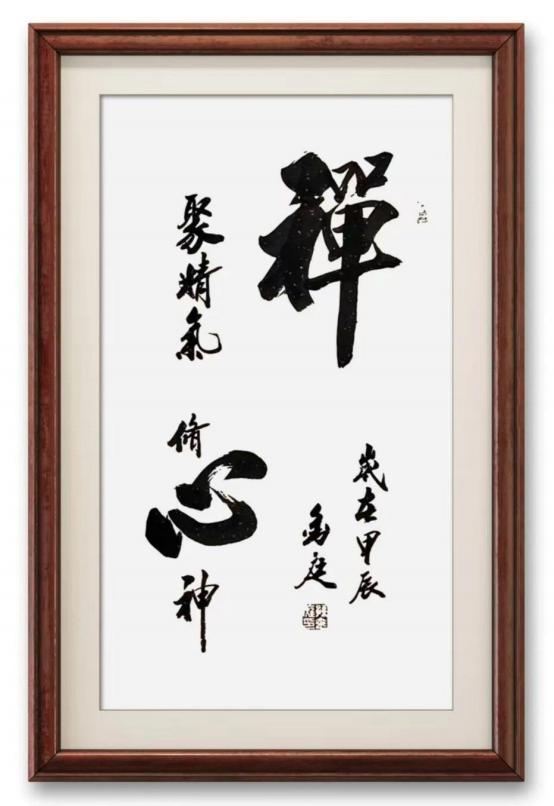 禪
聚精氣
脩心神
歲在甲辰
庭